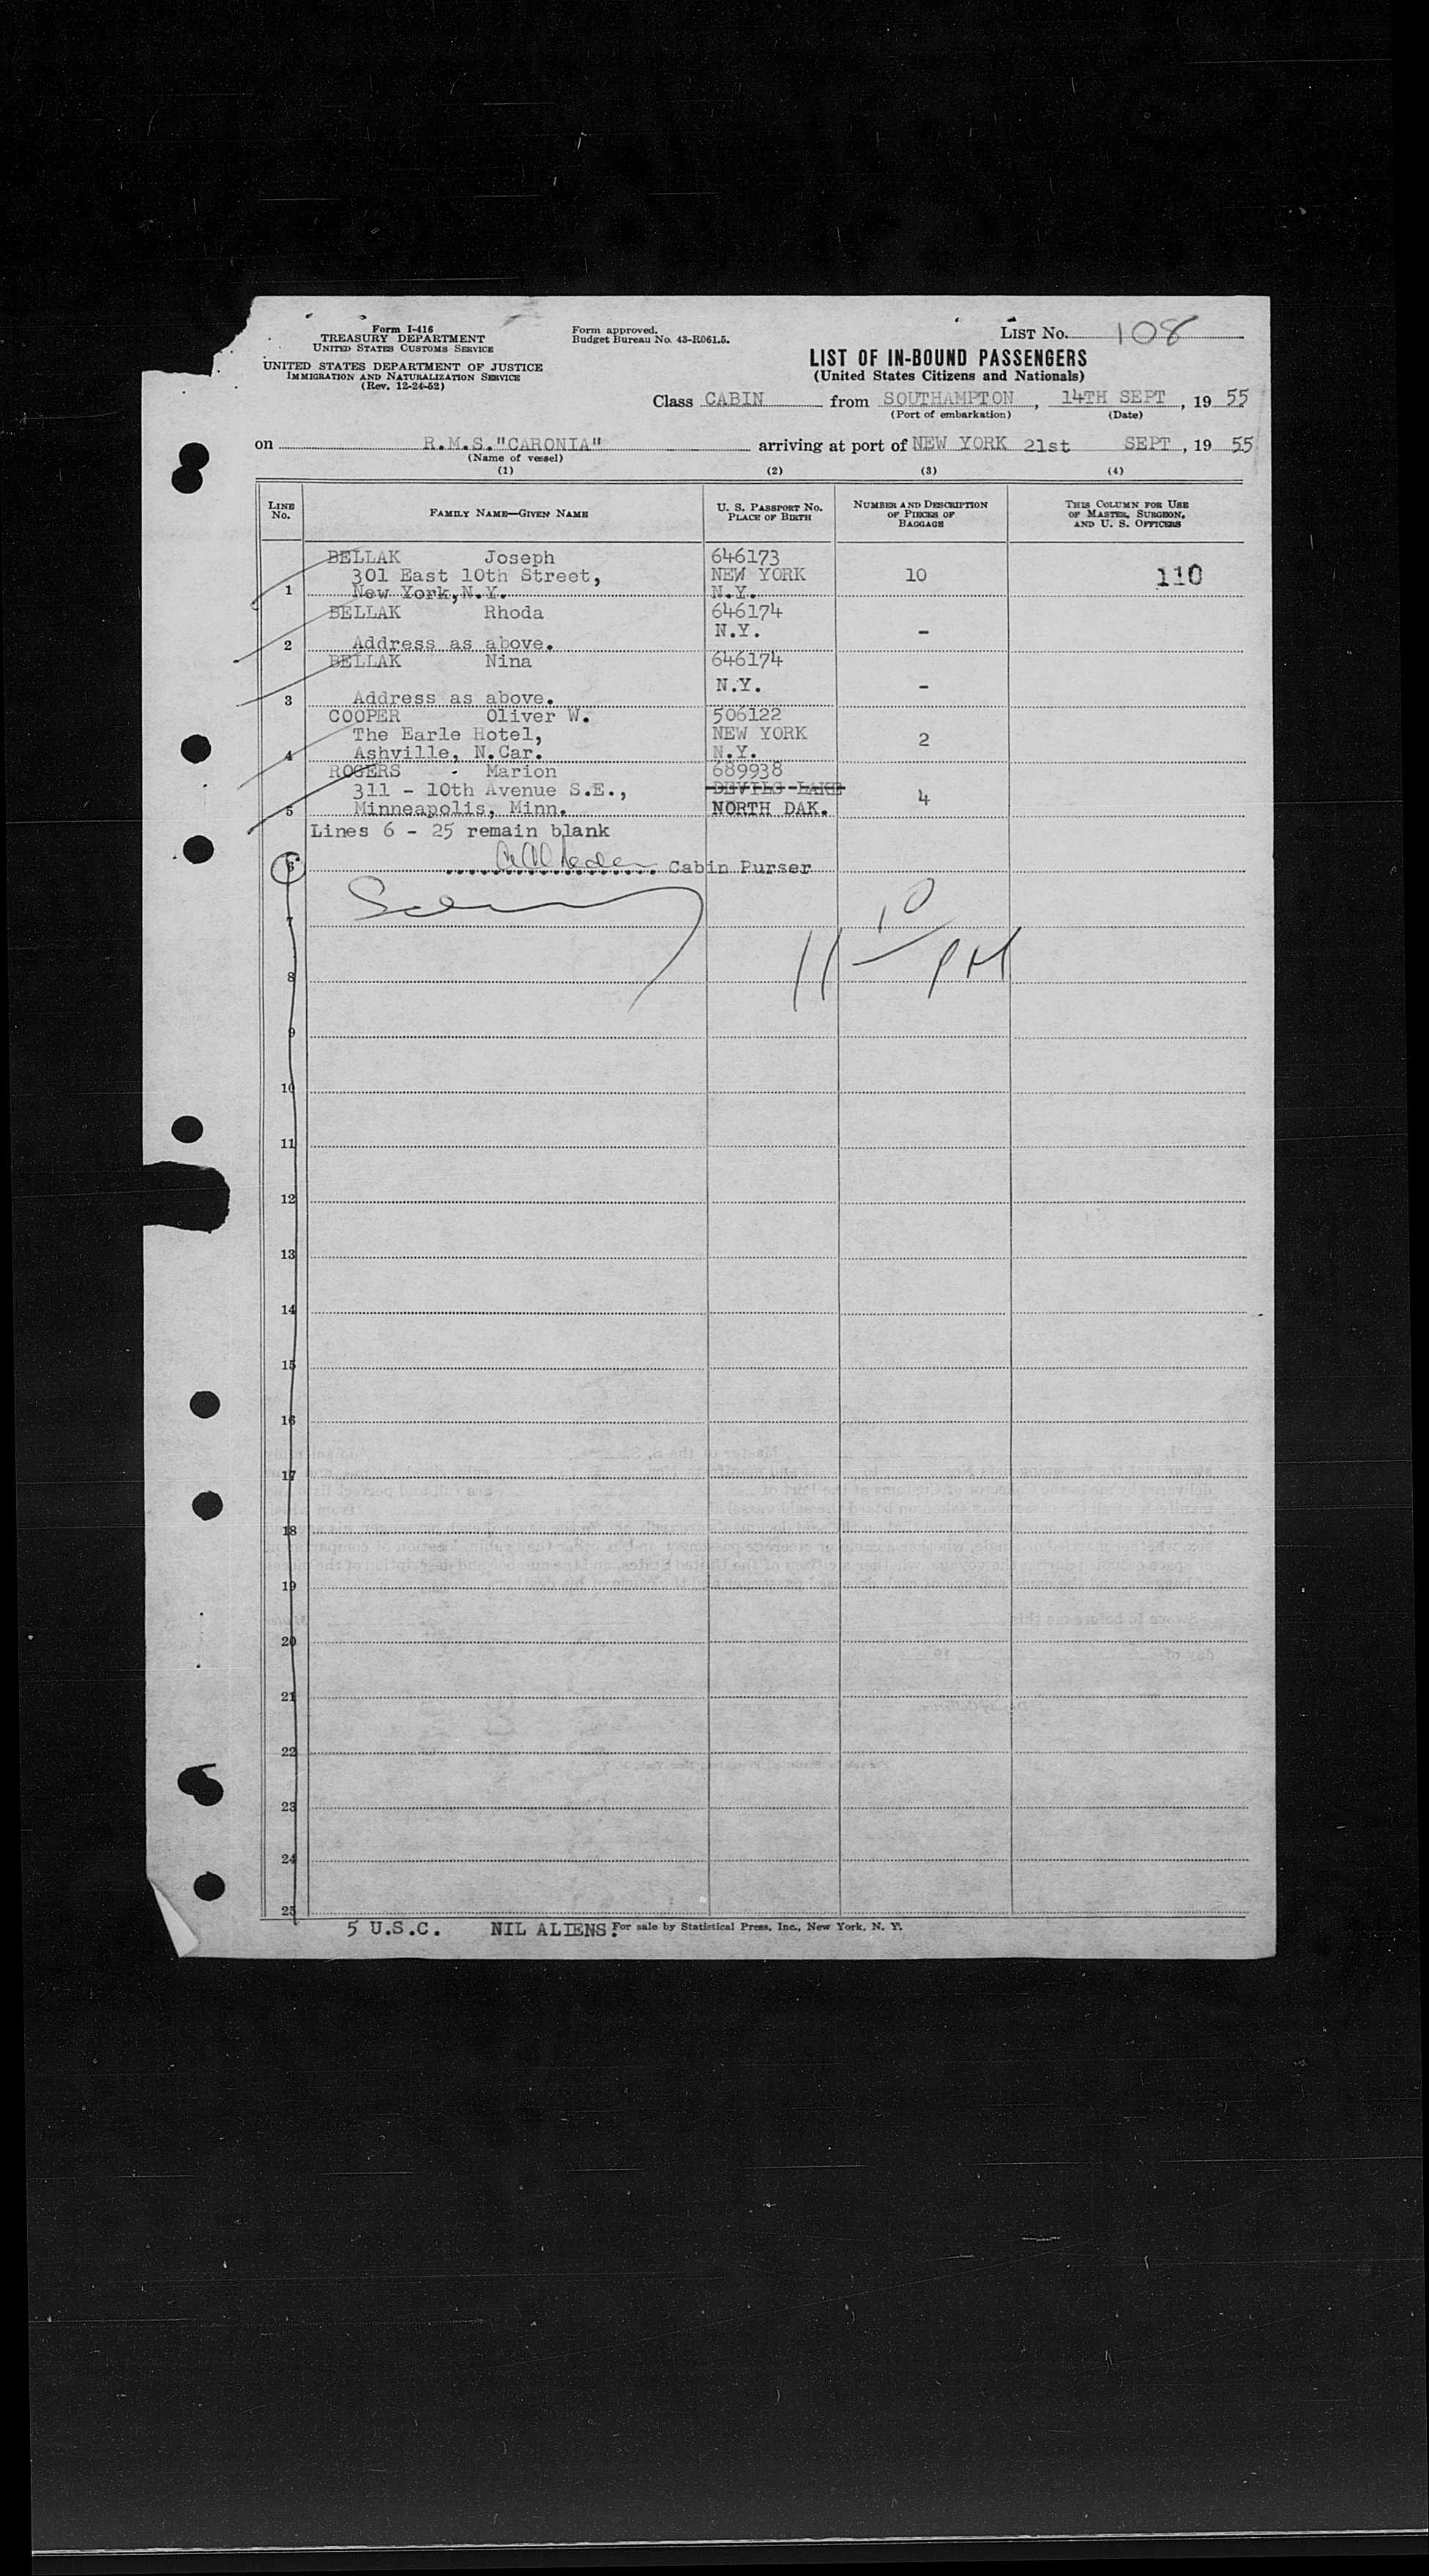 Form I-416
TREASURY DEPARTMENT
UNITED STATES CUSTOMS SERVICE
UNITED STATES DEPARTMENT OF JUSTICE
IMMIGRATION AND NATURALIZATION SERVICE
(Rev. 12-24-52)
Form approved.
Budget Bureau No. 43-R061.5.
LIST NO. 108
LIST OF IN-BOUND PASSENGERS
(United States Citizens and Nationals)
Class CABIN from SOUTHAMPTON, 14TH SEPT, 19 55
(Port of embarkation) (Date)
on R.M.S."CARONIA" arriving at port of NEW YORK 21st SEPT, 19 55
(Name of vessel)
(1) (2) (3) (4)
LINE NO. FAMILY NAME—GIVEN NAME U. S. PASSPORT NO. PLACE OF BIRTH NUMBER AND DESCRIPTION OF PIECES OF BAGGAGE THIS COLUMN FOR USE OF MASTER, SURGEON, AND U. S. OFFICERS
BELLAK Joseph 646173
301 East 10th Street, NEW YORK 10 110
1 New York,N.Y. N.Y.
BELLAK Rhoda 646174
N.Y. -
2 Address as above.
BELLAK Nina 646174
N.Y. -
3 Address as above.
COOPER Oliver W. 506122
The Earle Hotel, NEW YORK 2
4 Ashville, N.Car. N.Y.
ROGERS - Marion 689938
311 - 10th Avenue S.E., DEVILS LAKE 4
5 Minneapolis, Minn. NORTH DAK.
Lines 6 - 25 remain blank
6 Cabin Purser
7
11 10 PM
8
9
10
11
12
13
14
15
16
17
18
19
20
21
22
23
24
25
5 U.S.C. NIL ALIENS. For sale by Statistical Press, Inc., New York, N. Y.